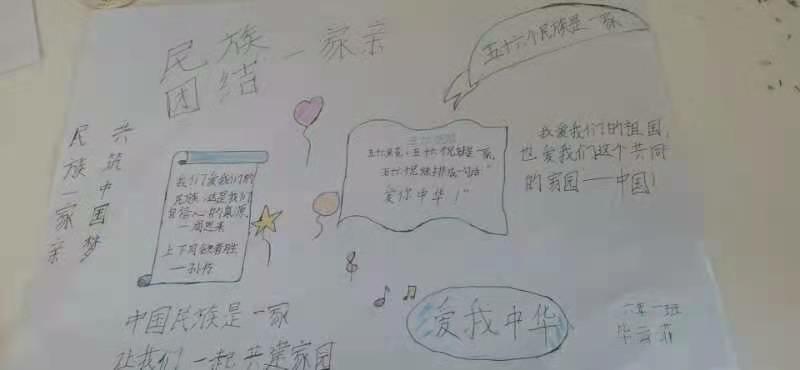 民族 一家亲
团结
五十六个民族是一家
共筑中国梦
民族一家亲
我们爱我们的
民族,这是我们
自信心的泉源
—周恩来
上下同欲者胜
——孙作
五十六个民族是一家,
爱你中华!"
我爱我们的祖国,
也爱我们这个共同
的家园——中国!
中国民族是一家
让我们一起共建家园
爱我中华
六年一班